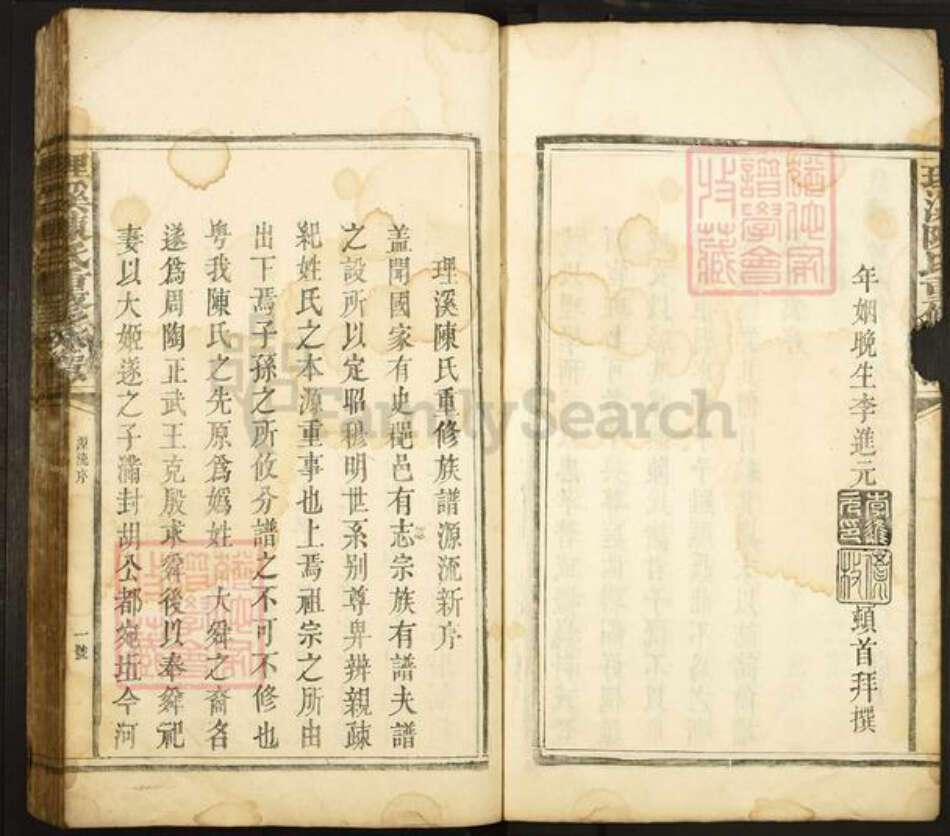 年姻晚生李進元
頓首拜撰
理溪陳氏重修族譜源流新序
蓋聞國家有史郡邑有志宗族有譜夫譜
之設所以定昭穆明世系别尊卑辨親疎
紀姓氏之本源重事也上焉祖宗之所由
出下焉子孫之所攸分譜之不可不修也
粤我陳氏之先原爲嬀姓大舜之裔名
遂爲周陶正武王克殷求舜後以奉舜祀
妻以大姬遂之子滿封胡公都宛坵今河
源流序
一號
FamilySearch